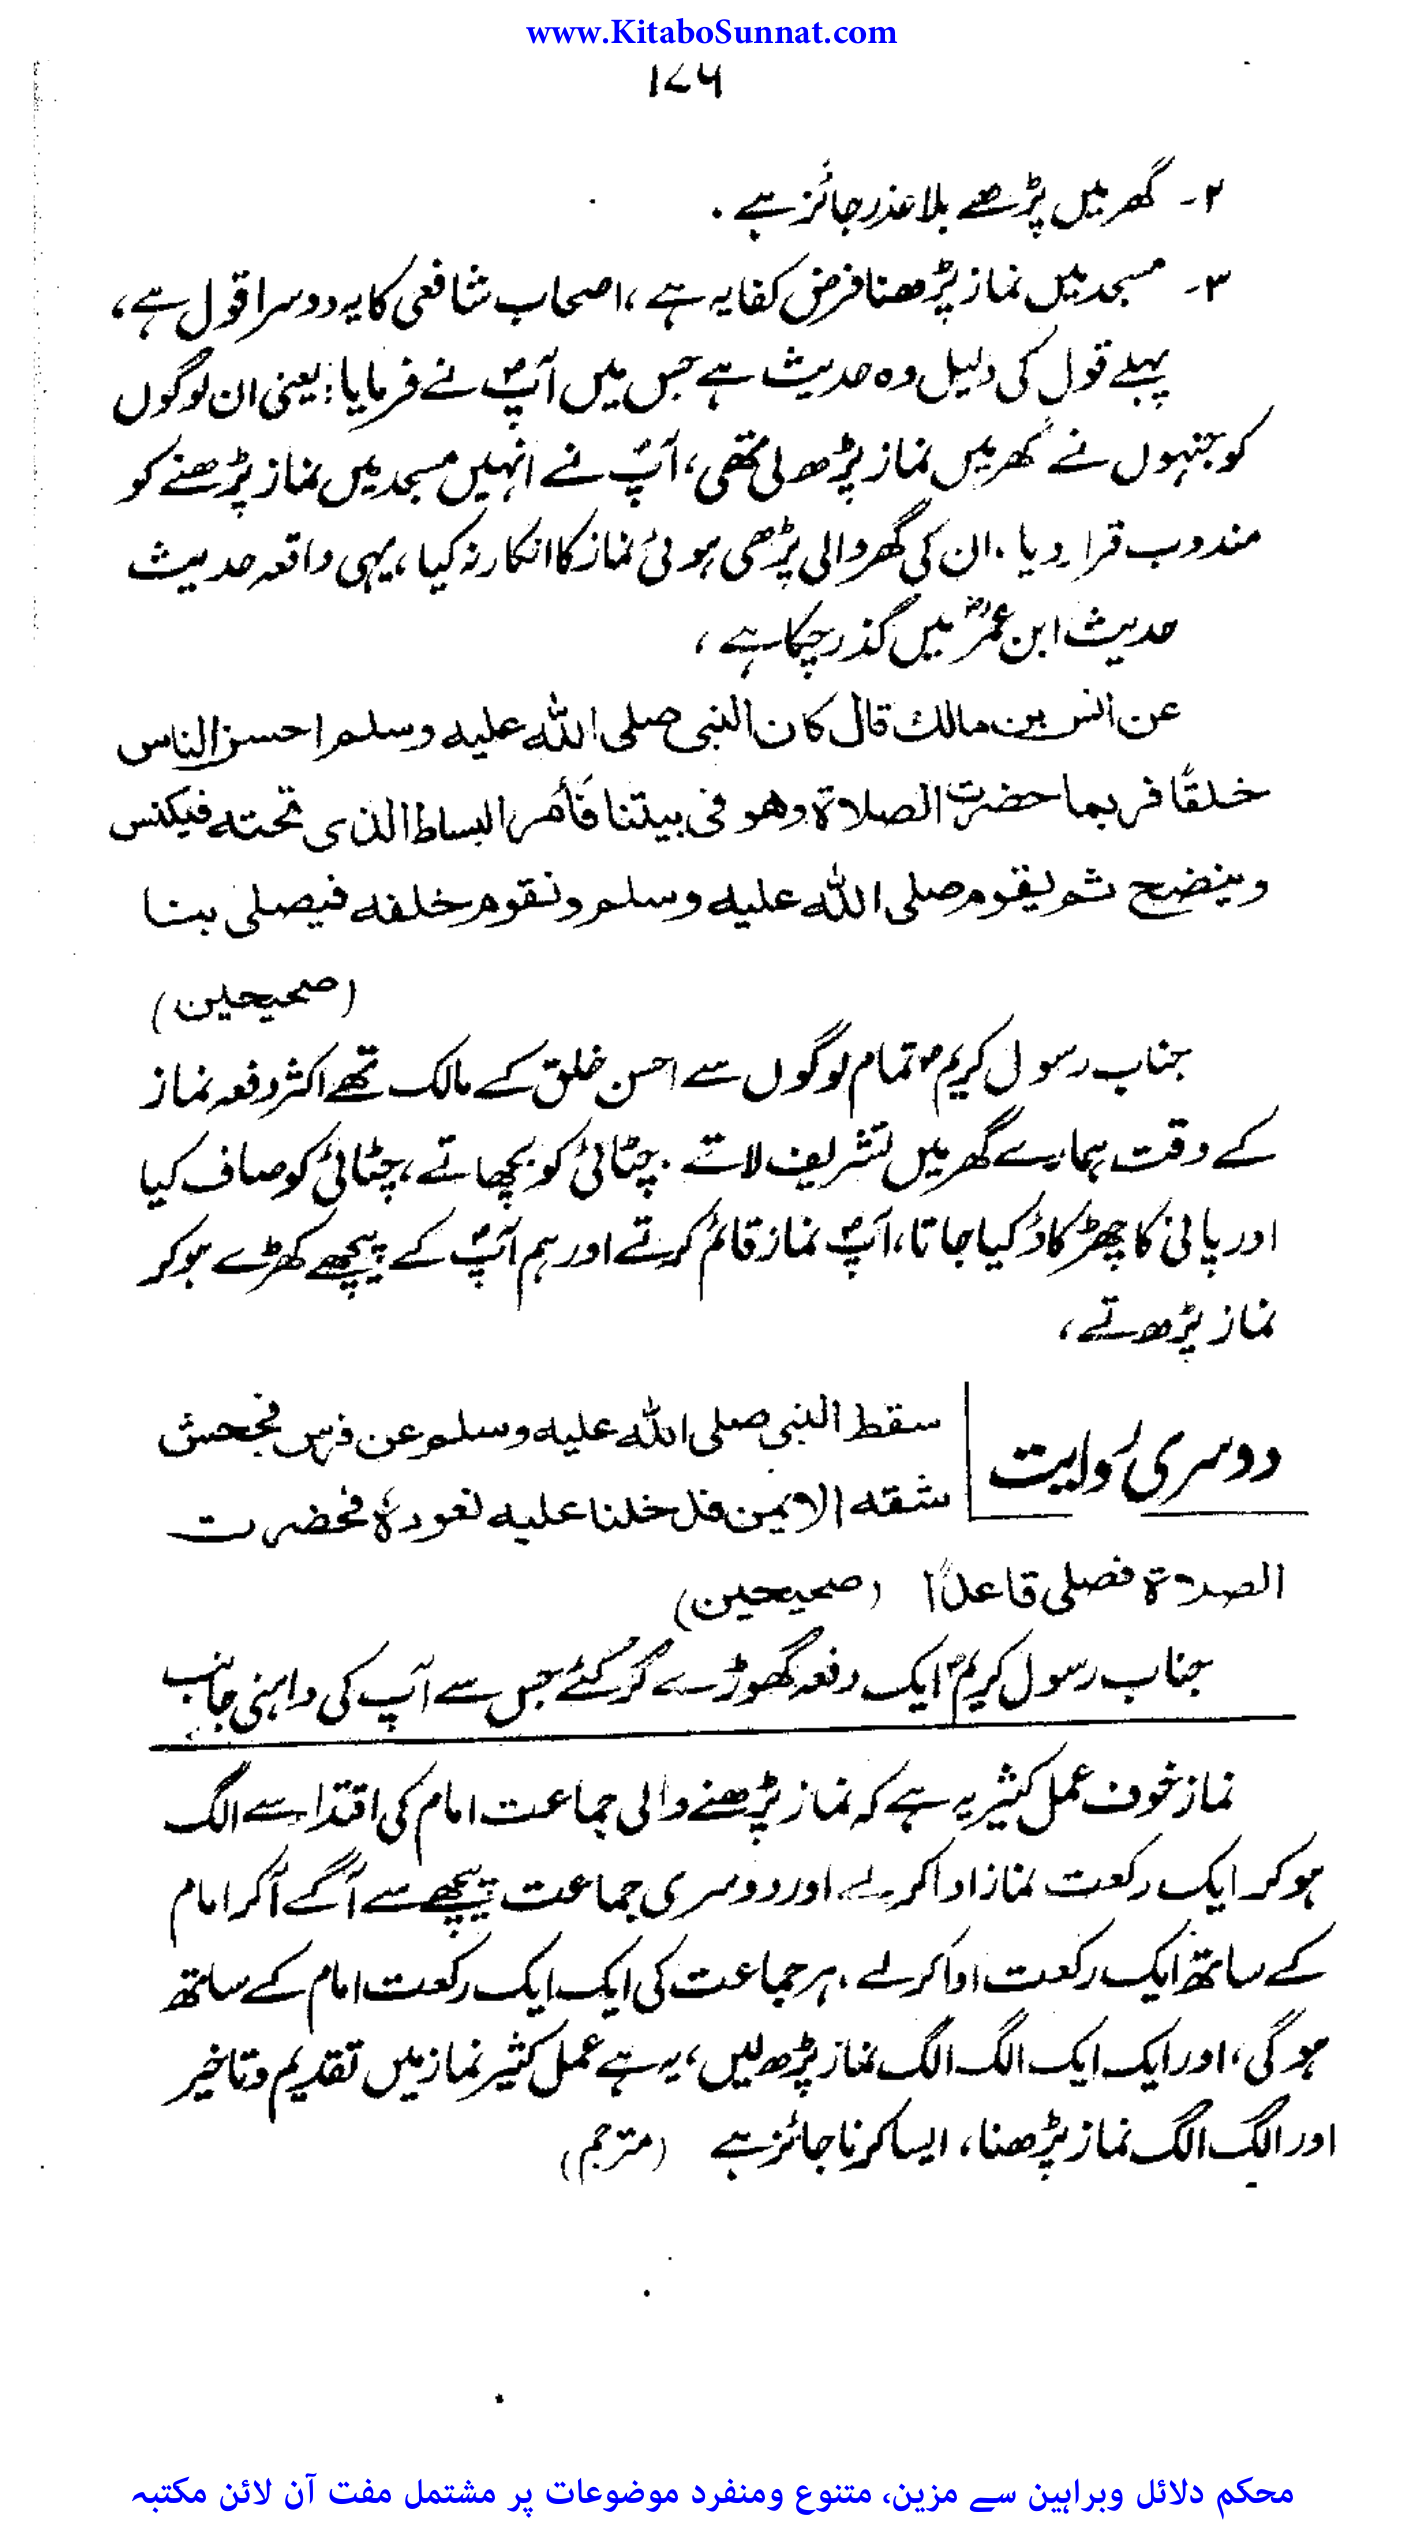 www.KitaboSunnat.com
۱۷۶
۲۔ گھر میں پڑھے بلا عذر جائز ہے۔
۳۔ مسجد میں نماز پڑھنا فرض کفایہ ہے، اصحاب شافعی کا یہ دوسرا قول ہے،
پہلے قول کی دلیل وہ حدیث ہے جس میں آپؐ نے فرمایا: یعنی ان لوگوں
کو جنہوں نے گھر میں نماز پڑھ لی تھی، آپؐ نے انہیں مسجد میں نماز پڑھنے کو
مندوب قرار دیا۔ ان کی گھر والی پڑھی ہوئی نماز کا انکار نہ کیا، یہی واقعہ حدیث
حدیث ابن عمرؓ میں گذر چکا ہے،
عن انس بن مالك قال كان النبي صلى الله عليه وسلم احسن الناس
خلقًا فربما حضرت الصلاة وهو في بيتنا فأمر البساط الذي تحته فيكنس
وينضح ثم يقوم صلى الله عليه وسلم ونقوم خلفه فيصلي بنا
(صحيحين)
جناب رسول کریمؐ تمام لوگوں سے احسن خلق کے مالک تھے اکثر دفعہ نماز
کے وقت ہمارے گھر میں تشریف لاتے۔ چٹائی کو بچھاتے، چٹائی کو صاف کیا
اور پانی کا چھڑکاؤ کیا جاتا، آپؐ نماز قائم کرتے اور ہم آپؐ کے پیچھے کھڑے ہو کر
نماز پڑھتے،
دوسری روایت
سقط النبي صلى الله عليه وسلم عن فرس فجحش
شقه الايمن فدخلنا عليه نعوده فحضرت
الصلاة فصلى قاعدًا (صحيحين)
جناب رسول کریمؐ ایک دفعہ گھوڑے سے گر گئے جس سے آپ کی داہنی جانب
نماز خوف عمل کثیر یہ ہے کہ نماز پڑھنے والی جماعت امام کی اقتدا سے الگ
ہو کر ایک رکعت نماز ادا کر لے اور دوسری جماعت پیچھے سے آگے آکر امام
کے ساتھ ایک رکعت ادا کر لے، ہر جماعت کی ایک ایک رکعت امام کے ساتھ
ہوگی، اور ایک ایک الگ الگ نماز پڑھ لیں، یہ ہے عمل کثیر نماز میں تقدیم و تاخیر
اور الگ الگ نماز پڑھنا، ایسا کرنا جائز ہے (مترجم)
محکم دلائل وبراہین سے مزین، متنوع ومنفرد موضوعات پر مشتمل مفت آن لائن مکتبہ